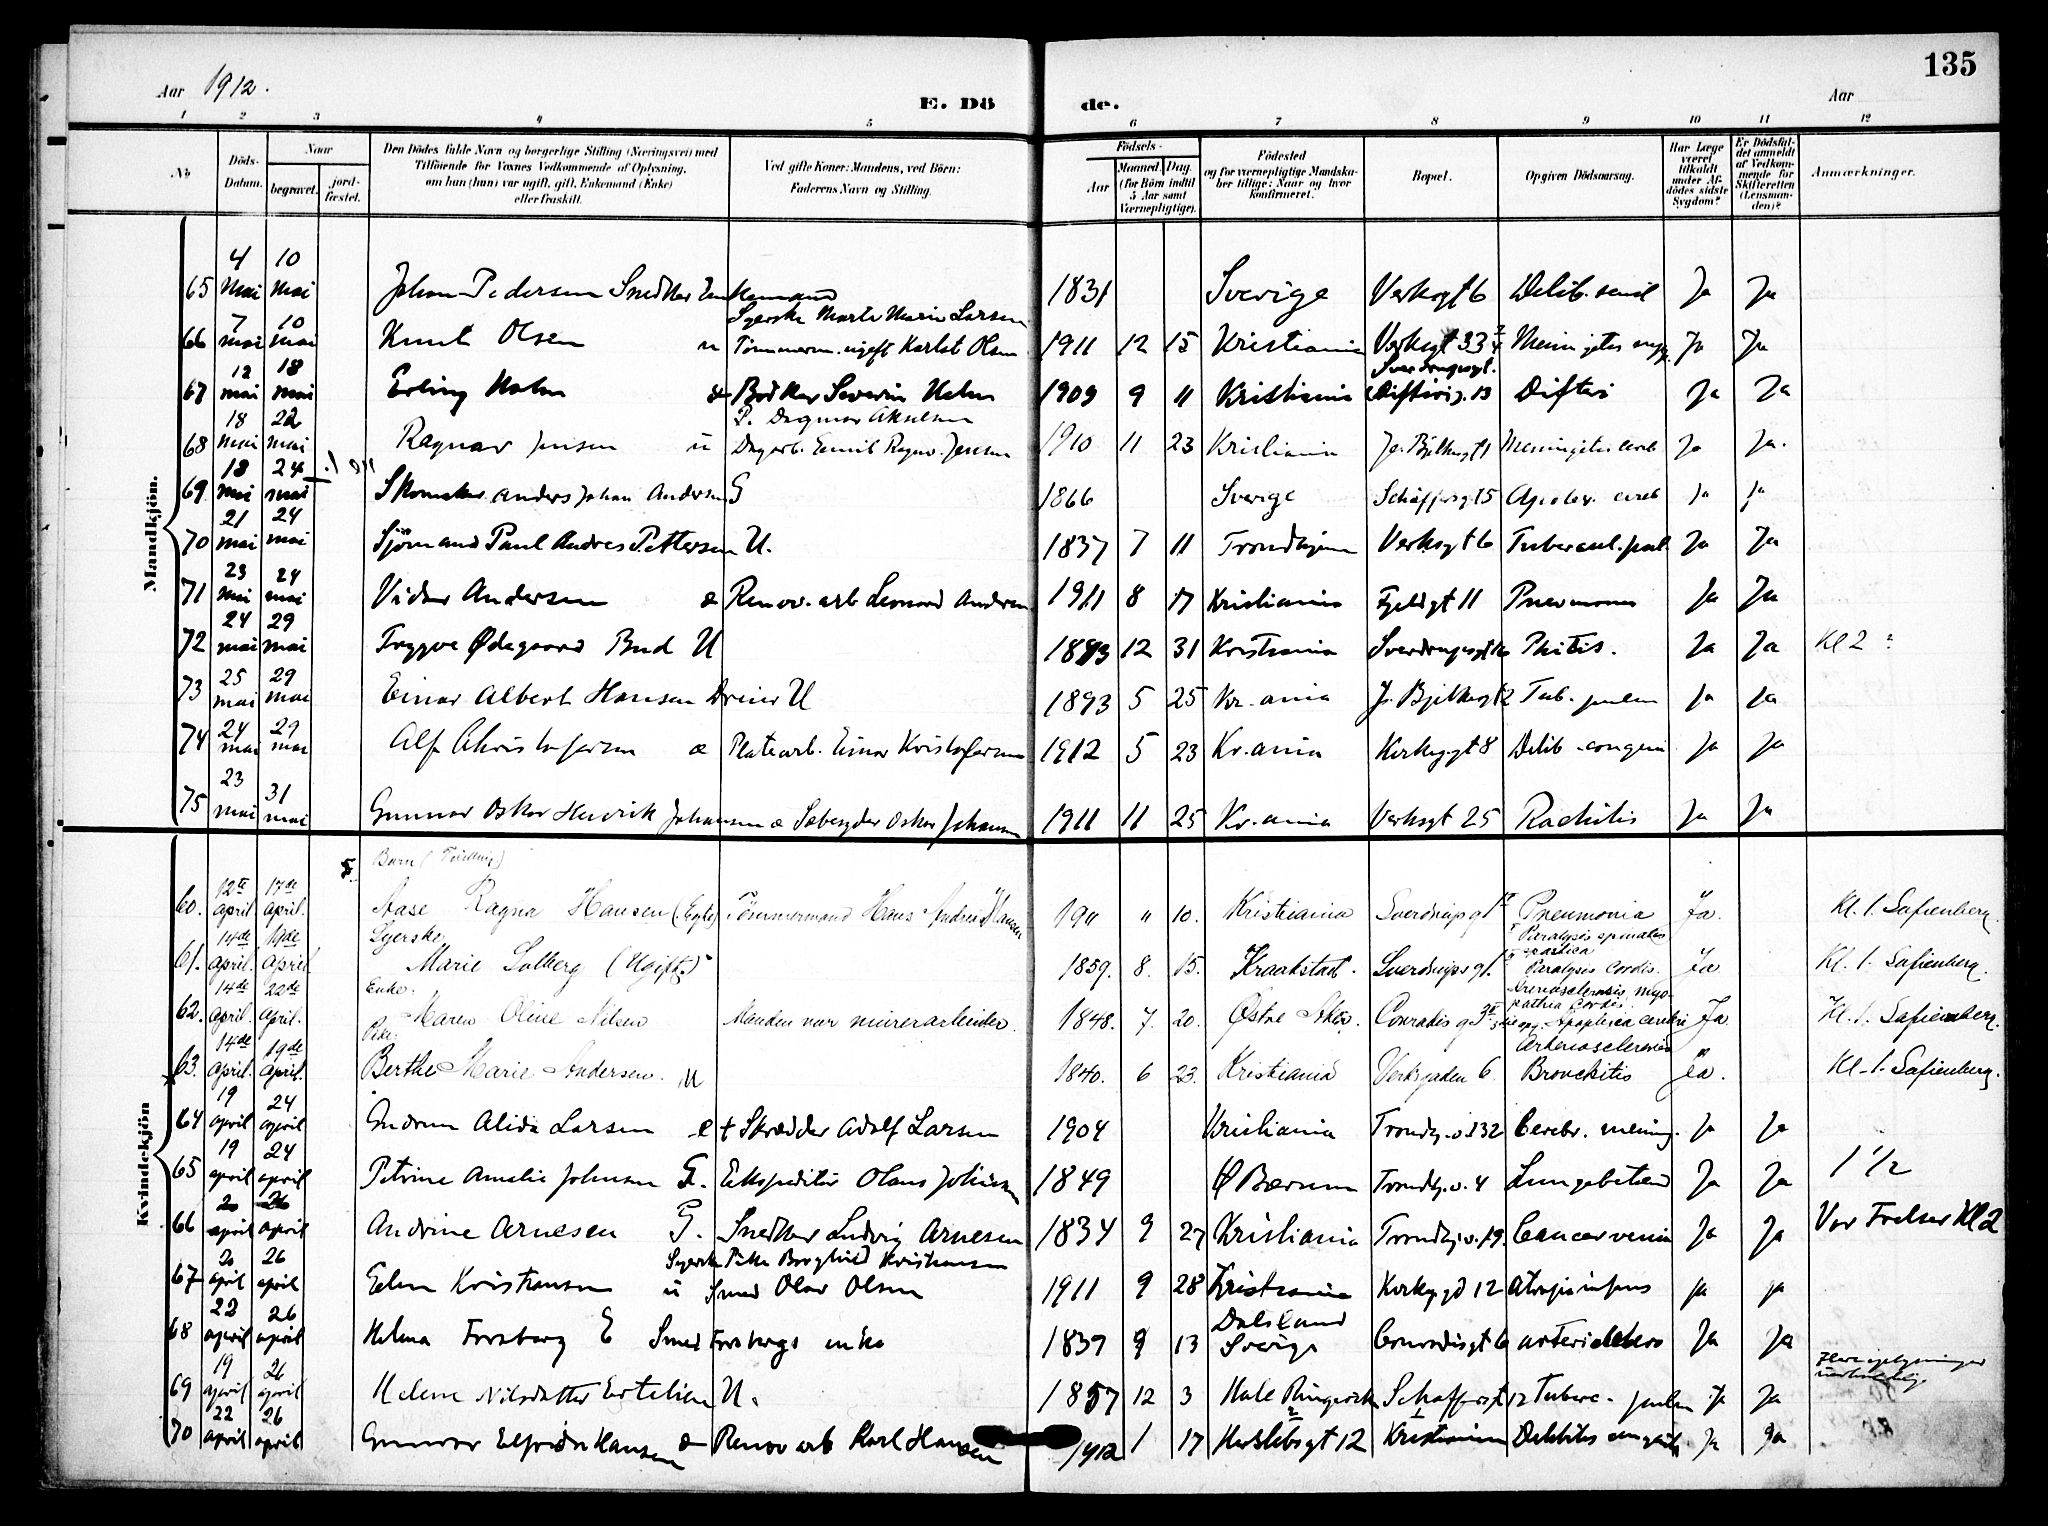 135
Aar 1912.
E. Dö de.
Aar
1 2 3 4 5 6 7 8 9 10 11 12
No
Döds-Datum.
Naar begravet. jord-fæstet.
Den Dödes fulde Navn og borgerlige Stilling (Næringsvei) med Tilföiende for Voxnes Vedkommende af Oplysning, om han (hun) var ugift, gift, Enkemand (Enke) eller fraskilt.
Ved gifte Koner: Mandens, ved Börn: Faderens Navn og Stilling.
Födsels-
Aar Maaned. Dag.
(for Börn indtil 5 Aar samt Værnepligtige).
Födested og for værnepligtige Mandskaber tillige: Naar og hvor konfirmeret.
Bopæl.
Opgiven Dödsaarsag.
Har Læge været tilkaldt under Afdödes sidste Sygdom?
Er Dödsfaldet anmeldt af Vedkommende for Skifteretten (Lensmanden)?
Anmærkninger.
Mandkjön.
65 4 mai 10 mai Johan Pedersen Snedker Enkemand 1831 Sverige Verksgt 6 Debil. senil Ja Ja
Syerske Marte Marie Larsen
66 7 mai 10 mai Knut Olsen u Tömmerm. ugift Karlot Olsen 1911 12 15 Kristiania Verksgt 33 Ja Ja
Sverdrupsgt.
67 12 mai 18 mai Erling Holm æ Bödker Severin Holm 1909 9 11 Kristiania 13 Difteri Ja Ja
P. Dagmar Akselsen
68 18 mai 22 mai Ragnar Jensen u Dagarb. Emil Ragnv. Jensen 1910 11 23 Kristiania Je. Bjelkesgt 1 Meningitis cereb Ja Ja.
69 18 mai 24 mai Skomaker Anders Johan Andersen G 1866 Sverige Schäffersgt 5 Apoplex. cereb Ja Ja
70 21 mai 24 mai Sjömand Paul Andres Pettersen U. 1837 7 11 Trondhjem Verksgt 6 Tubercul. pul. Ja Ja
71 23 mai 24 mai Vidar Andersen æ Renov. arb Leonard Andersen 1911 8 17 Kristiania Fjeldgt 11 Pnevmoni Ja Ja
72 24 mai 29 mai Trygve Ødegaard Bud U 1893 12 31 Kristiania Sverdrupsgt Phitis. Ja Ja Kl 2 ?
73 25 mai 29 mai Einar Albert Hansen Dreier U 1893 5 25 Kr.ania J. Bjelkesgt 2 Tub. pulm Ja Ja
74 24 mai 29 mai Alf Christofersen æ Platearb. Einar Kristofersen 1912 5 23 Kr.ania Kirkegt 8 Debil congeni Ja Ja
75 23 mai 31 mai Gunnar Oskar Henrik Johansen æ Sæbesyder Oskar Johansen 1911 11 25 Kr.ania Verksgt 25 Rachitis Ja Ja
Kvindekjön
Barn
60. 12te april 17de april. Aase Ragna Hansen (Egte) Tömmermand Hans Andreas Hansen 1911 " 10. Kristiania Sverdrupsgt Pneumonia Ja. Kl. 1. Sofienberg.
Syerske.
Paralysis spinalis spastica
61. 14de april. 19de april Marie Solberg (Ugift) 1859. 8. 15. Kraakstad. Sverdrupsgt Paralysis Cordis. Ja Kl. 1. Sofienberg.
Enke.
Arteriosclerosis, myopathia Cordis.
62. 14de april. 22de april. Maren Oline Nilsen Manden var murerarbeider. 1848. 7. 20. Østre Aker Conradis g. Apoplexia cerebri Ja. Kl. 1. Sofienberg.
Pike
Arteriosclerosis
63. 14de april. 19de april. Berthe Marie Andersen. U 1840. 6 23. Kristiania Verksgaden 6. Bronchitis Ja. Kl. 1. Sofienberg.
64 19 april 24 april Gudrun Alida Larsen e † Skrædder Adolf Larsen 1904 Kristiania Trondhj.v. 132 Cerebr. mening. Ja Ja
65 19 april 24 april Petrine Amalie Johnsen G. Ekspeditör Olaus Johnsen 1849 Ø Bærum Trondhj.v. 4 Lungebetænd Ja Ja 1 1/2
66 20 april 26 april Andrine Arnesen G. Snedker Ludvig Arnesen 1834 9 27 Kristiania Trondhj.v. 19. Cancer Ja Ja Vor Frelser Kl 2
Syerske Pike Borghild Kristiansen
67 20 april 26 april Kristiansen u Smed Olav Olsen 1911 9 28 Kristiania Kirkegt 12 Ja Ja
Dalsland
68 22 april 26 april Helma Forsberg E Smed Forsbergs enke 1839 9 13 Sverige Conradisgt 6 Ja Ja
69 19 april 26 april Helene Nilsdatter U. 1857 12 3 Hole Ringerike Schäffersgt 12 Tuberc. pulm Ja Ja
70 22 april 26 april Gunvor Elfrida Hansen æ Renov arb Karl Hansen 1912 1 17 Herslebsgt 12 Kristiania Debilitas congenita Ja Ja